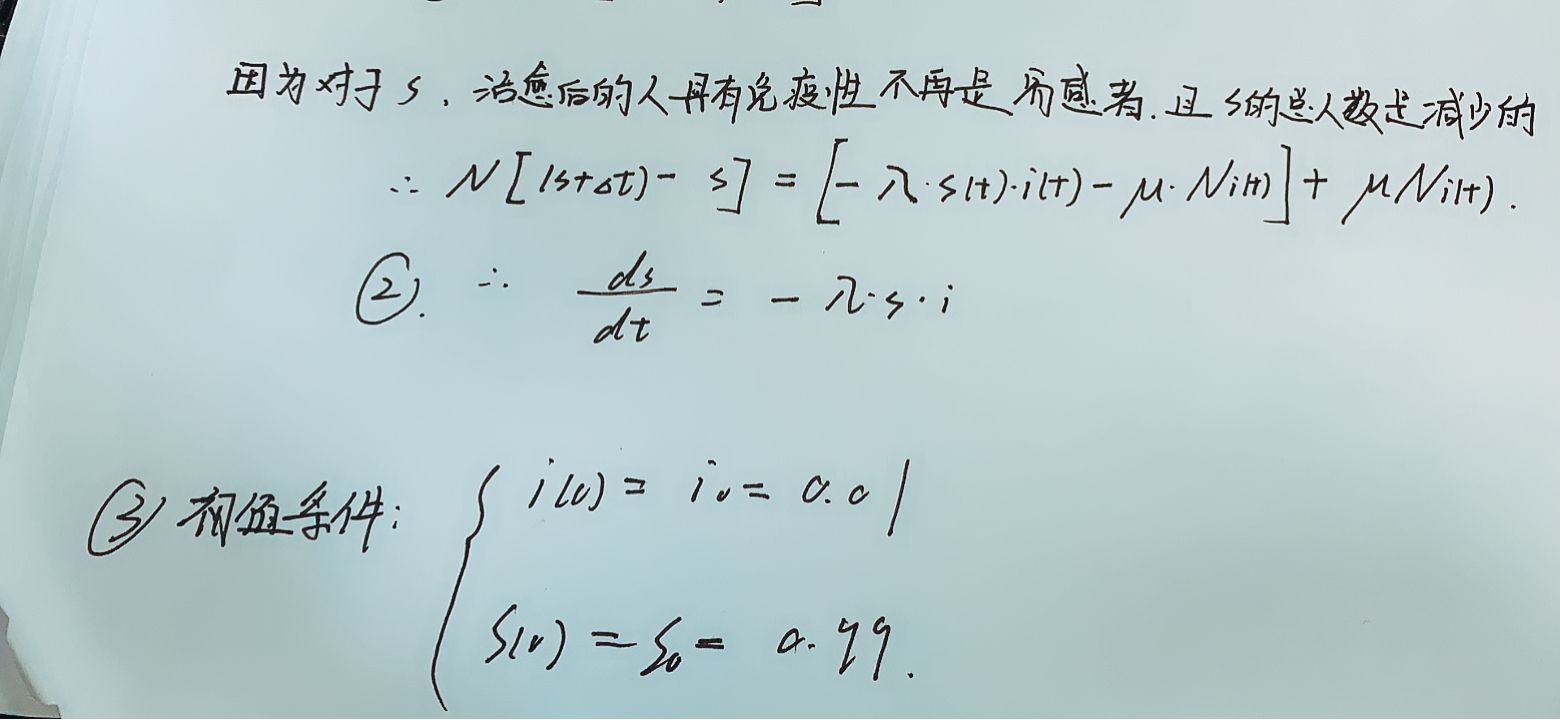 因为对于 s，治愈后的人具有免疫性不再是易感者，且 s的总人数是减少的
∴ N[(s+Δt) - s] = [- λ·s(t)·i(t) - μ·Ni(t)] + μNi(t).
②. ∴ ds/dt = - λ·s·i
③ 初值条件: { i(0) = i₀ = 0.01
S(0) = S₀ = 0.99.